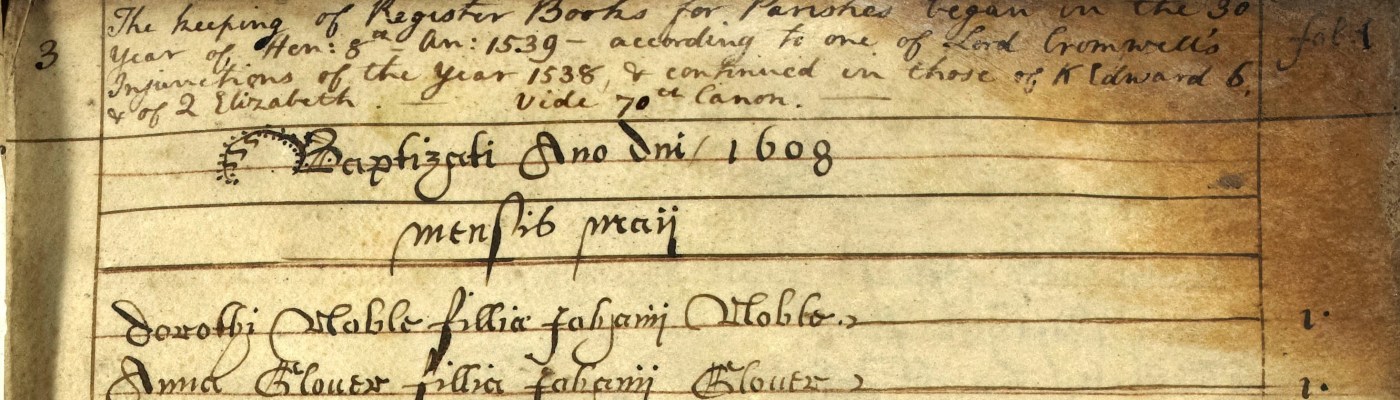 The keeping of Register Books for Parishes began in the 30
3
Year of Hen: 8th An: 1539 – according to one of Lord Cromwell's
Injunctions of the Year 1538, & continued in those of K Edward 6,
& of Q Elizabeth. — Vide 70th Canon. —
fol: 1
Baptizati Ano dni / 1608
mensis maij
dorothi Noble fillia Johanij Noble
1.
Anna Glover fillia Johanij Glover
1.